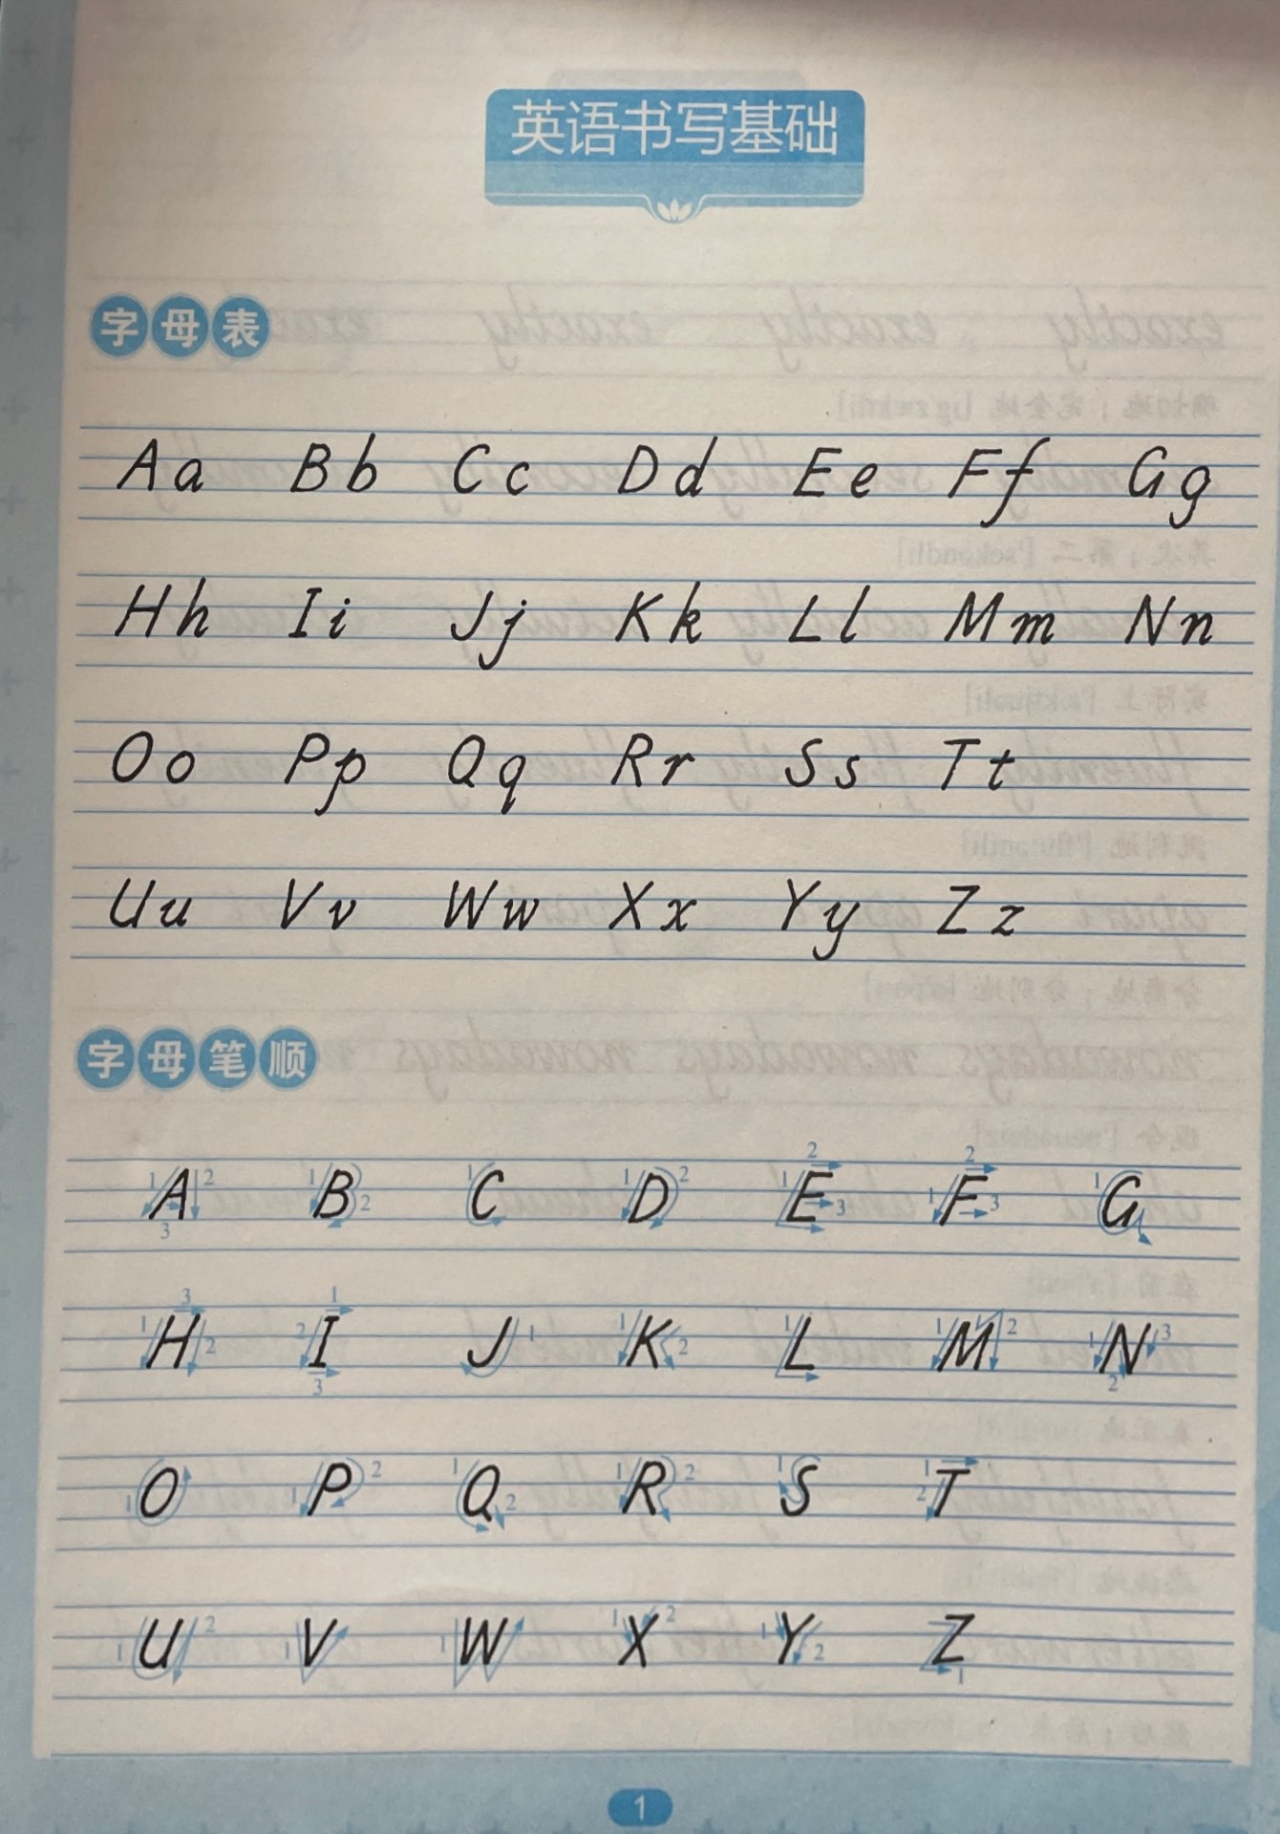 英语书写基础
字母表
Aa Bb Cc Dd Ee Ff Gg
Hh Ii Jj Kk Ll Mm Nn
Oo Pp Qq Rr Ss Tt
Uu Vv Ww Xx Yy Zz
字母笔顺
A B C D E F G
H I J K L M N
O P Q R S T
U V W X Y Z
1